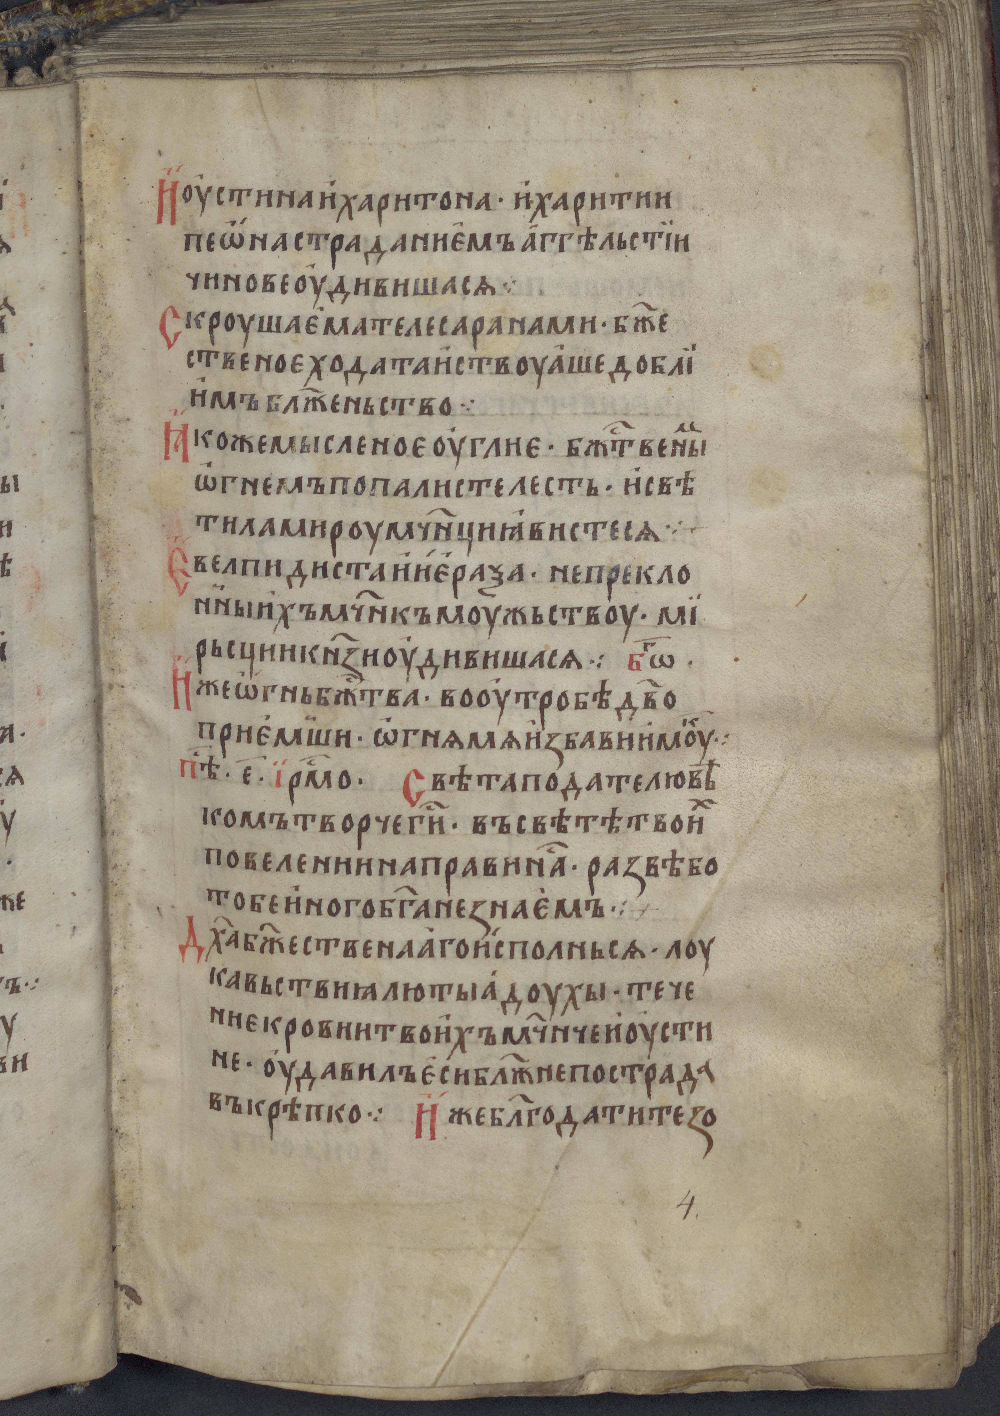 И҆оу҆стина и҆ харитона · и҆ харитии
пеѡ҆на страданиє҆мъ а҆ггѣльстїи
чинове оу҆дивишася ⁘
Скроушає҆ма телеса ранами · бж҃е
ственоє ходатаи҆ствоуа҆ше доблї
и҆мъ блж҃еньство ⁘
Ꙗ҆коже мысленоє оу҆глиє · бж҃твены
ѡ҆гнемъ попали стелесть · и҆ свѣ
тила мироу мч҃нци ꙗ҆вистеся ⁘
Є҆велпидиста и҆ и҆є҆раѯа · непрекло
нныи҆хъ мч҃нкъ моу҆жьствоу · мї
рьсции кн҃зи оу҆дивишася ⁘ бг҃ѡ ·
И҆же ѡ҆гнь бж҃тва · во оу҆тробѣ дв҃о
приє҆мши · ѡ҆гня мя и҆збави и҆моу҆ ⁘
пѣ · є҃ · і҆рмо · Свѣта подателю вѣ
комъ творче ги҃ · въ свѣтѣ твои҆
повелении направи на҆ · развѣ бо
тобе и҆ного бг҃а не знає҆мъ ⁘
Дх҃а бж҃ествена а҆го и҆сполнься · лоу
кавьствиꙗ лютыа҆ доухы · тече
ниє крови и твои҆хъ мч҃ниче и҆оу҆сти
не · оу҆давилъ є҆си блж҃не пострада
въ крѣпко ⁘ И҆же блг҃одати тезо
4.